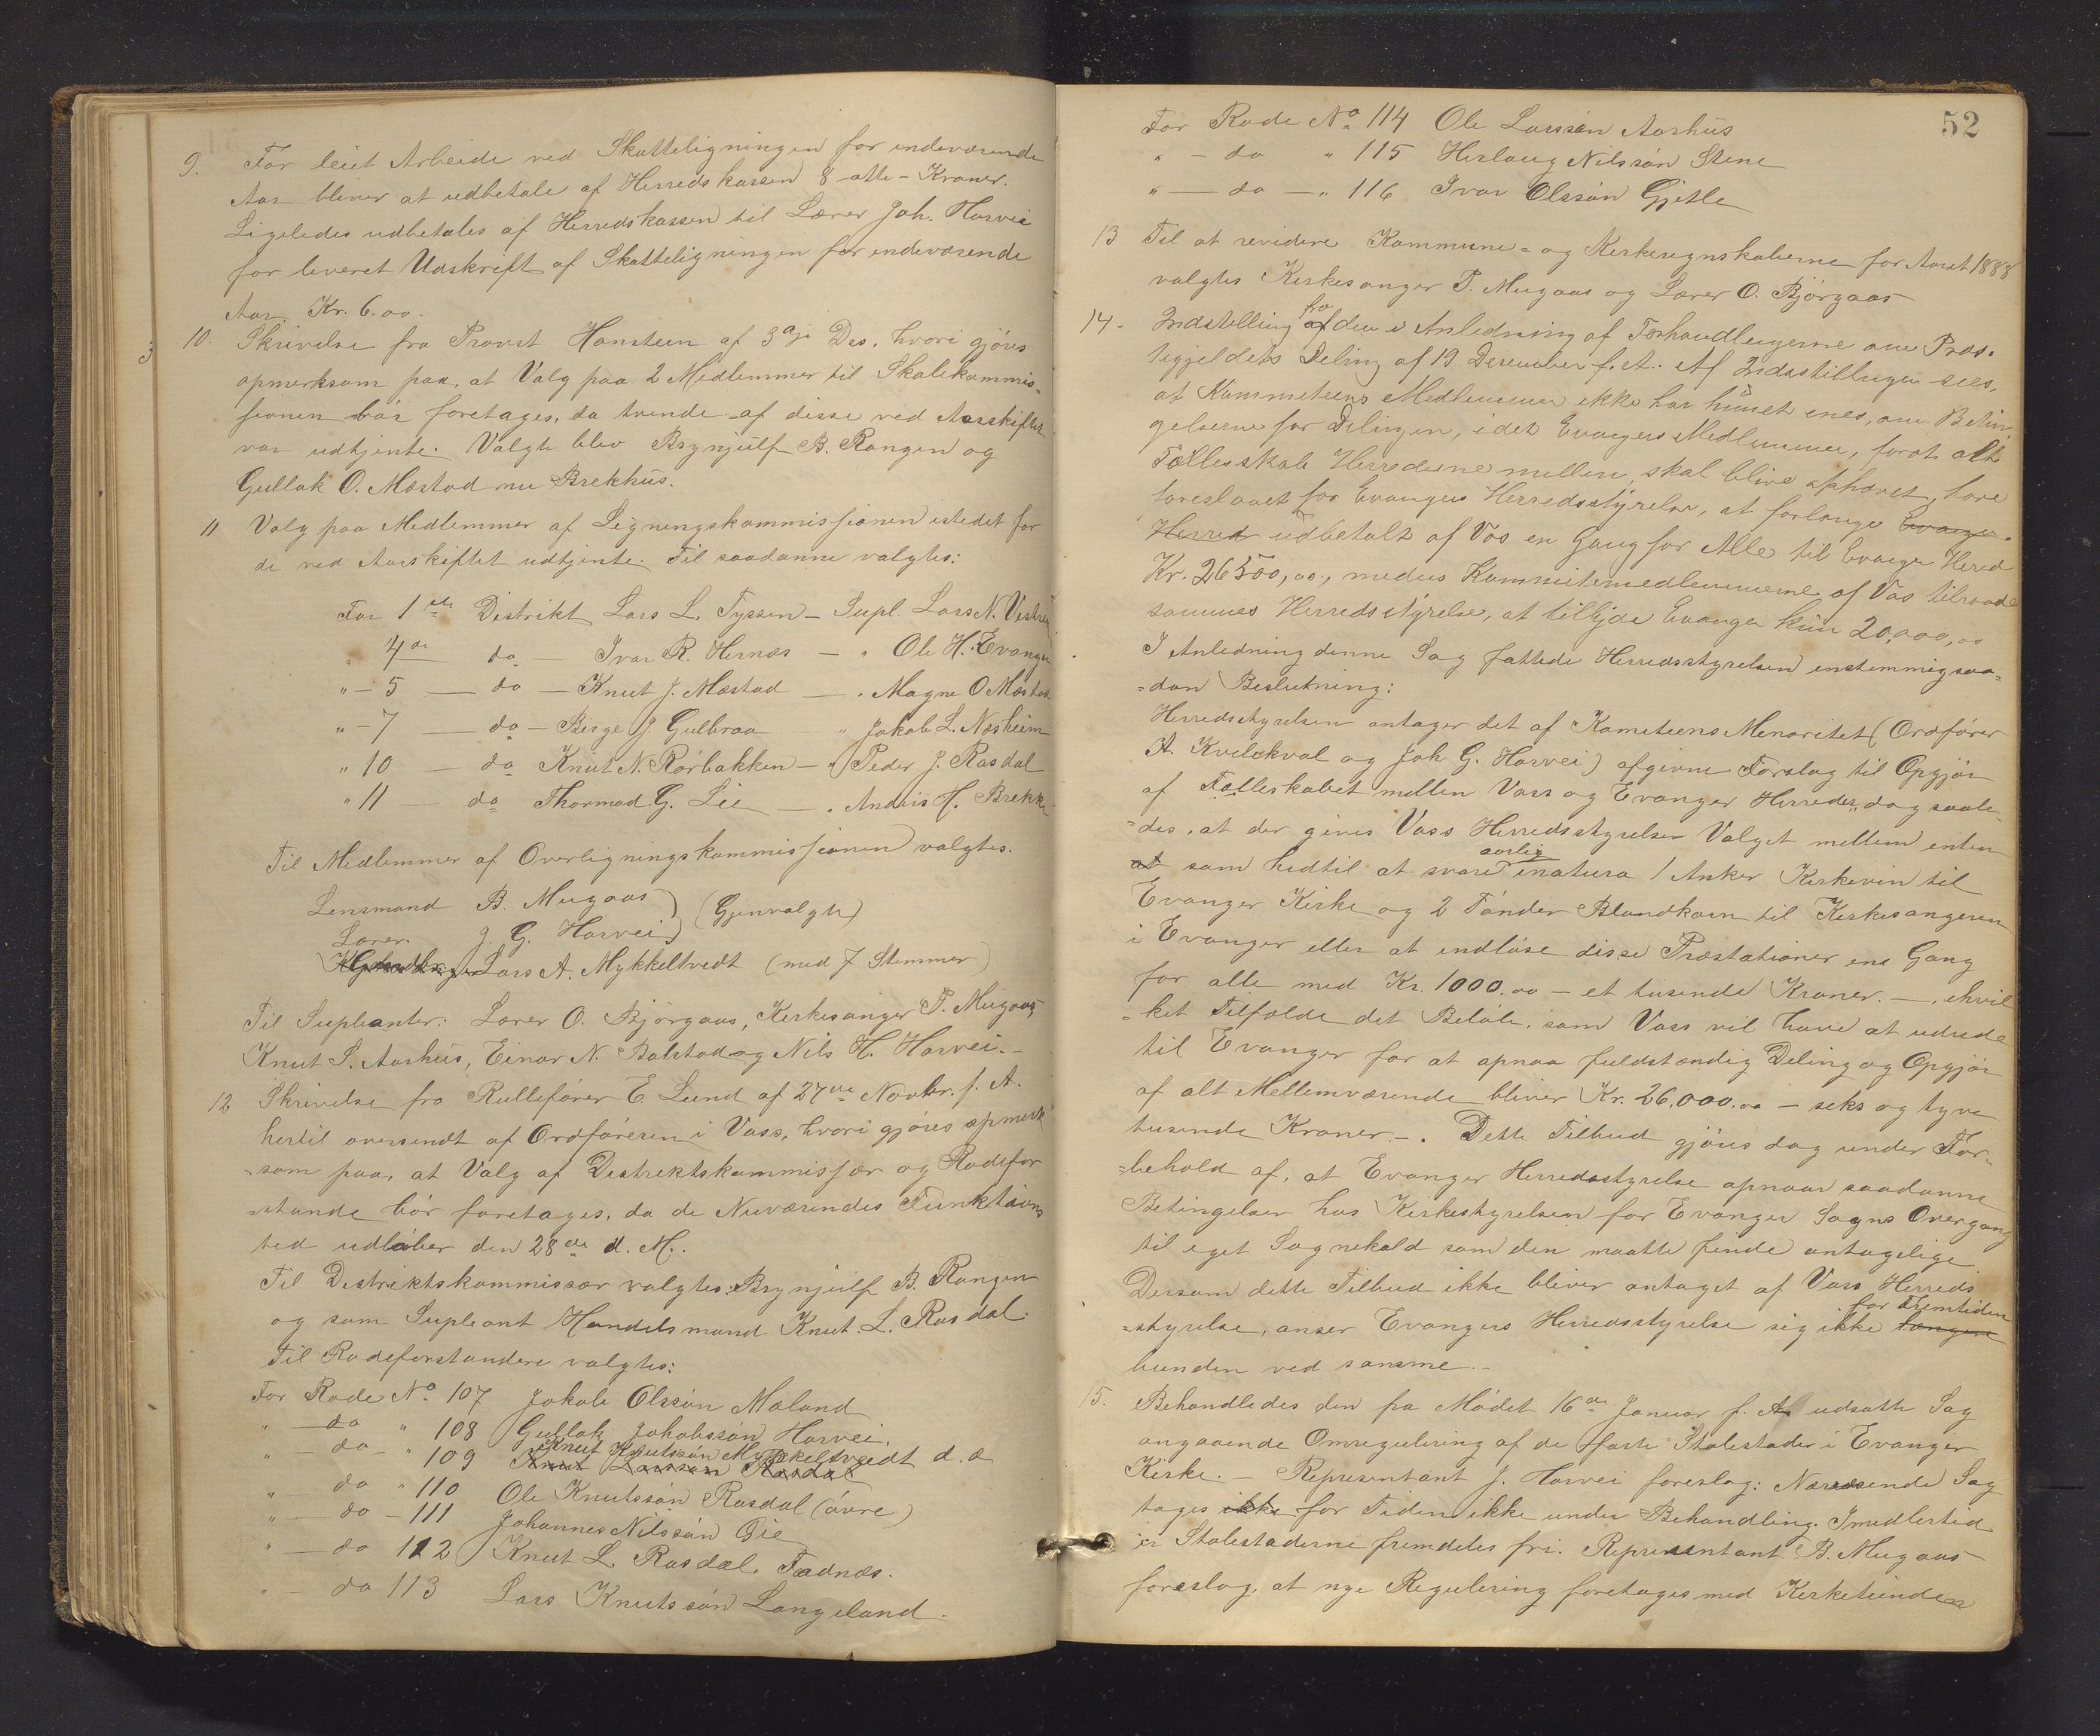 9. For leiet Arbeide ved Skatteligningen for indeværende
Aar bliver at udbetale af Herredskassen 8 - otte - Kroner.
Ligeledes udbetales af Herredskassen til Lærer Joh. Horvei
for leveret Udskrift af Skatteligningen for indeværende
Aar, Kr. 6.00.
10. Skrivelse fra Provst Hansteen af 3die Des. hvori gjöres
opmerksom paa, at Valg paa 2 Medlemmer til Skolekommis-
sionen bör foretages, da tvende af disse ved Aarskiftet
var udtjente. Valgte blev Brynjulf B. Rongen og
Gullak O. Mæstad nu Brekhus.
11 Valg paa Medlemmer af Ligningskommissionen istedet for
de ved Aarskiftet udtjente. Til saadanne valgtes:
For 1ste Distrikt Lars L. Tyssen - Supl. Lars N. Vestrei
" 4de do - Ivar R. Hernæs - " Ole H. Evanger
" - 5 - do - Knut J. Mæstad - " Magne O Mæstad
" - 7 - do - Birge J. Gulbraa " Jakob L. Næsheim
" 10 - do Knut N. Rörbakken - " Peder J. Rasdal
" 11 - do Thormod G. Lie - " Andris H. Brekke
Til Medlemmer af Overligningskommissionen valgtes.
Lensmand B. Mugaas
Lærer J. G. Horvei (Gjenvalgte)
Lars A. Mykkeltvedt (med 7 Stemmer)
Til Supleanter: Lærer O. Bjørgaas, Kirkesanger P. Mugaas,
Knut S. Aarhus, Einar N. Bolstad og Nils H. Horvei. -
12 Skrivelse fra Rullefører E. Lund af 27de Novbr. f. A.
hertil oversendt af Ordföreren i Voss, hvori gjöres opmerk
-som paa, at Valg af Distriktskommissær og Rodefor
-stande bör foretages, da de Nuværendes Funktions
tid udlöber den 28de d. M.
Til Distriktskommissær valgtes: Brynjulf B. Rongen
og som Supleant Handelsmand Knut L. Rasdal.
Til Rodeforstandere valgtes:
For Rode No 107 Jakob Olssön Mæland
" - do " 108 Gullak Jakobssön Horvei.
Knut Knutssön Mykkeltvedt d. æ
" - do - " 109 Knut Larssön Rasdal
" - do " 110 Ole Knutssön Rasdal (övre)
" - do - 111 Johannes Nilssön Gie
" - do 112 Knut L. Rasdal, Fadnæs.
" - do 113 Lars Knutssön Langeland.
52
For Rode No 114 Ole Larssön Aarhus
" - do " 115 Herlaug Nilssön Stene
" - do - " 116 Ivar Olssön Gjetle
13 Til at revidere Kommune- og Kirkeregnskaberne for Aaret 1888
valgtes Kirkesanger P. Mugaas og Lærer O. Bjørgaas
fra
14 - Indstilling af den i Anledning af Forhandlingerne om Præs-
tegjeldets Deling af 19 December f. A. Af Indstillingen sees,
at Kommiteens Medlemmer ikke har kunet enes, om Betin-
gelserne for Delingen, idet Evangers Medlemmer, forat alt
Fællesskab Herrederne mellem, skal blive ophævet, have
foreslaaet for Evangers Herredsstyrelse, at forlange Evanger
Herred udbetalt af Vos en Gang for Alle til Evanger Hered
Kr. 26500,00, medens Kommitemedlemmerne af Vos tilraade
sammes Herredsstyrelse, at tilbyde Evanger kun 20,000,00
I Anledning denne Sag fattede Herredsstyrelsen enstemmig saa-
-dan Beslutning:
Herredsstyrelsen antager det af Komiteens Menoritet (Ordfører
A. Kvilekval og Joh G. Horvei) afgivne Forslag til Opgjör
af Fælleskabet mellem Voss og Evanger Herreder, dog saale
-des, at der gives Voss Herredsstyrelse Valget mellem enten
aarlig
at som hidtil at svare inatura 1 Anker Kirkevin til
Evanger Kirke og 2 Tönder Blandkorn til Kirkesangeren
i Evanger eller at indlöse disse Præstationer ene Gang
for alle med Kr. 1000.00 - et tusende Kroner. -, ihvil
-ket Tilfælde det Belöb, som Voss vil have at udrede
til Evanger for at opnaa fuldstændig Deling og Opgjör
af alt Mellemværende bliver Kr. 26.000.00 - seks og tyve
tusende Kroner. -. Dette Tilbud gjöres dog under For-
-behold af, at Evanger Herredsstyrelse opnaar saadanne
Betingelser hos Kirkestyrelsen for Evanger Sogns Overgang
til eget Sognekald som den maatte finde antagelige
Dersom dette Tilbud ikke bliver antaget af Voss Herreds
for Fremtiden
-styrelse, anser Evangers Herredsstyrelse sig ikke længere
bunden ved samme. -
15. Behandledes den fra Mödet 16de Januar f. A. udsatte Sag
angaaende Omregulering af de faste Stolestader i Evanger
Kirke. - Representant J. Horvei foreslog: Nærværende Sag
tages ikke for Tiden ikke under Behandling. Imidlertid
er Stolestaderne fremdeles fri. Representant B. Mugaas
foreslog, at nye Regulering foretages med Kirketiender